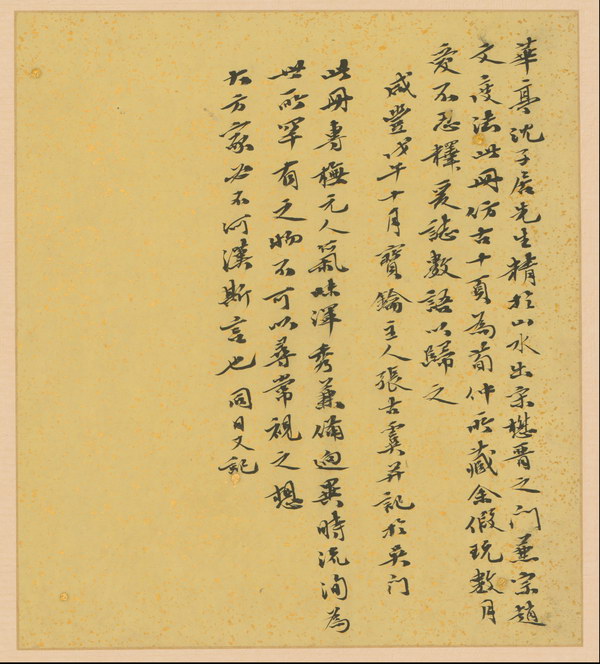 華亭沈子居先生精於山水出宗懋晋之门兼宗趙
文度法此冊仿古十頁為荀仲所藏余假玩數月
愛不忍釋爰誌數語以歸之
咸豐戊午十月寶鑰主人張古虞并記於吳门
此冊専橅元人氣味渾秀兼備迥異時流洵為
世所罕有之物不可以尋常視之想
大方家必不河漢斯言也同日又記